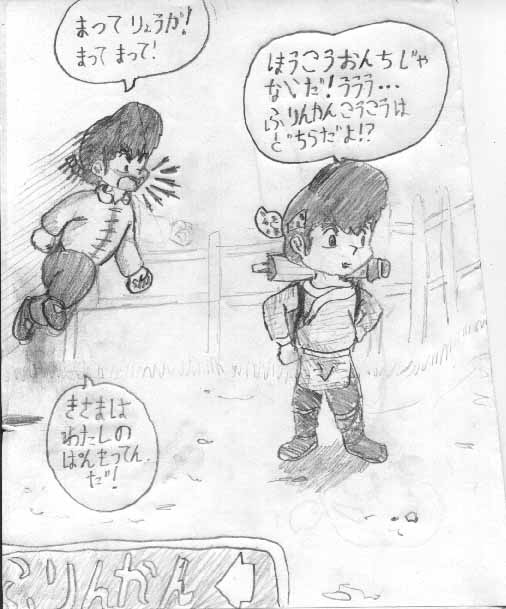 まってりょうが!
まってまって!
ほうこうおんちじゃ
ないだ!ううう…
ふりんかんこうこうは
どちらだよ!?
きさまは
わたしの
ぱんもってん
だ!
ふりんかん